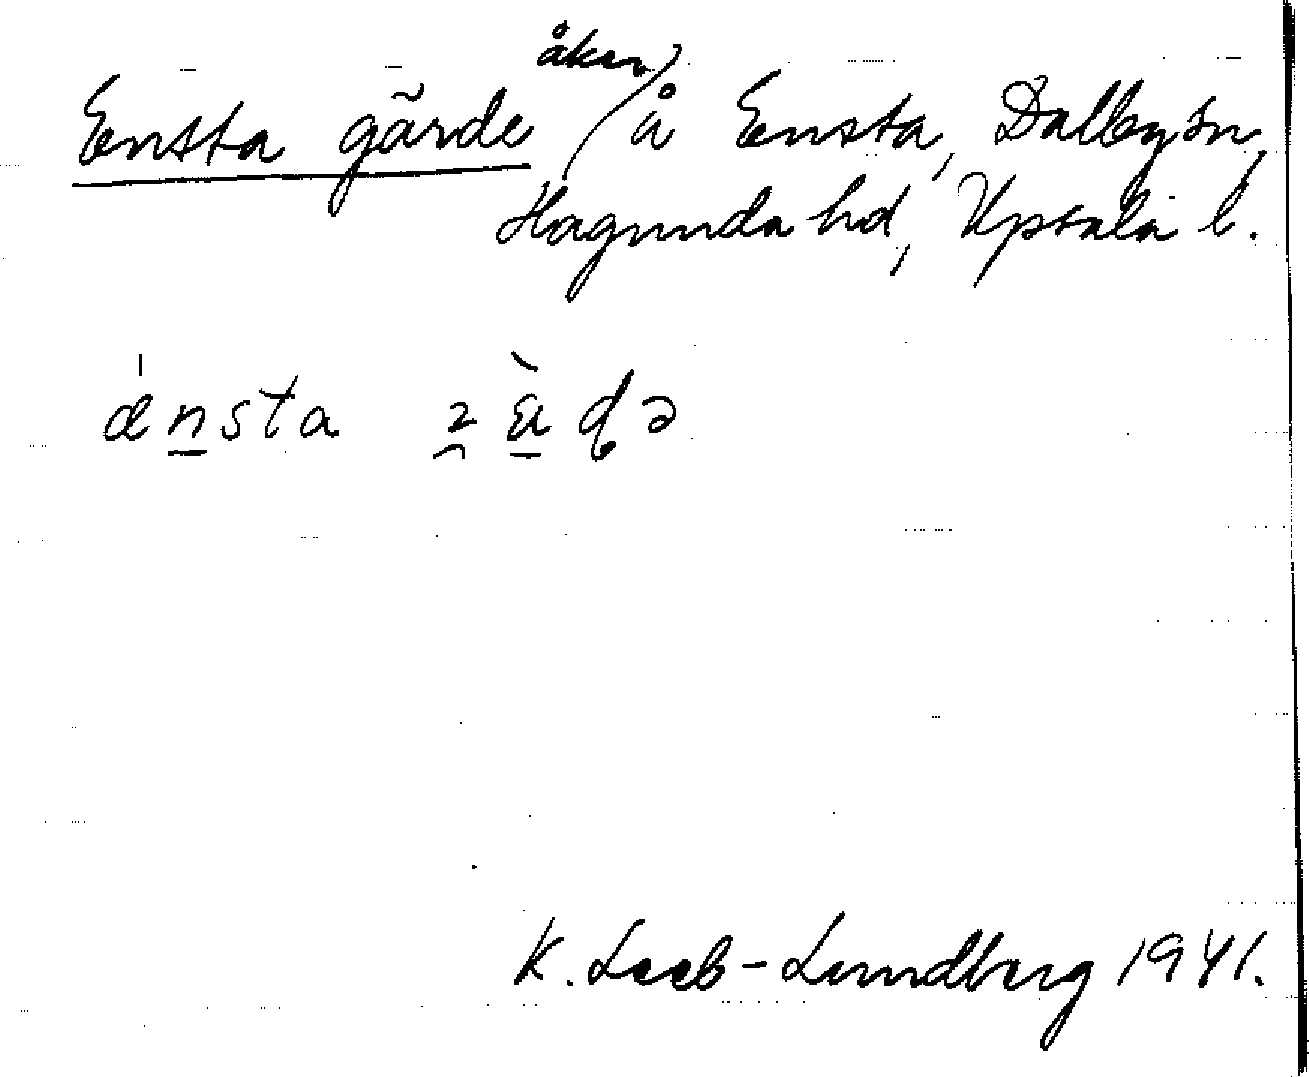 Ensta gärde åker å Ensta, Dalby sn,
Hagunda hd, Upsala l.
ænsta
K. Leeb-Lundberg 1941.